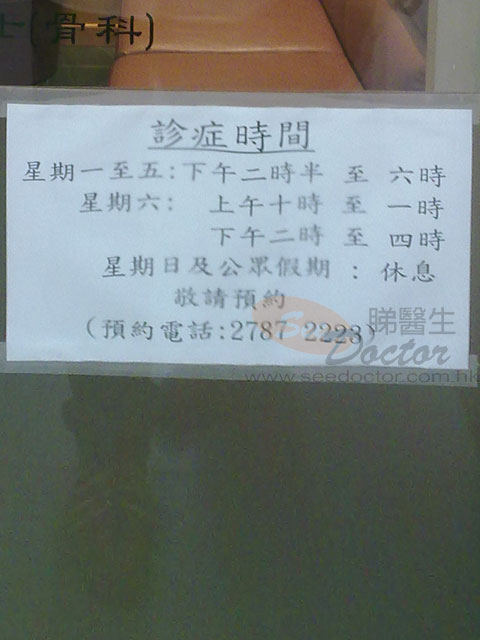 士(骨科)
診症時間
星期一至五:下午二時半 至 六時
星期六: 上午十時 至 一時
下午二時 至 四時
星期日及公眾假期 : 休息
敬請預約
(預約電話:2787 2223)
睇醫生
Doctor
www.seedoctor.com.hk